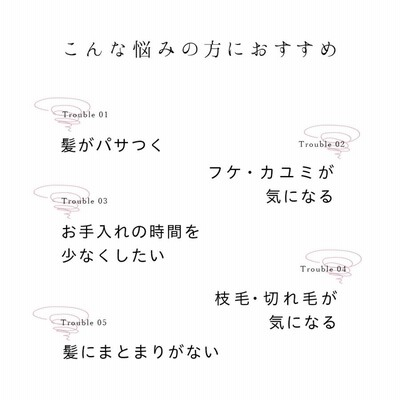 こんな悩みの方におすすめ
Trouble 01
髪がパサつく
Trouble 02
フケ・カユミが
気になる
Trouble 03
お手入れの時間を
少なくしたい
Trouble 04
枝毛・切れ毛が
気になる
Trouble 05
髪にまとまりがない